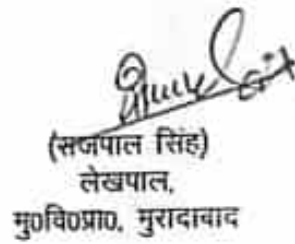 (सजपाल सिंह)
लेखपाल,
मु0वि0प्रा0, मुरादाबाद